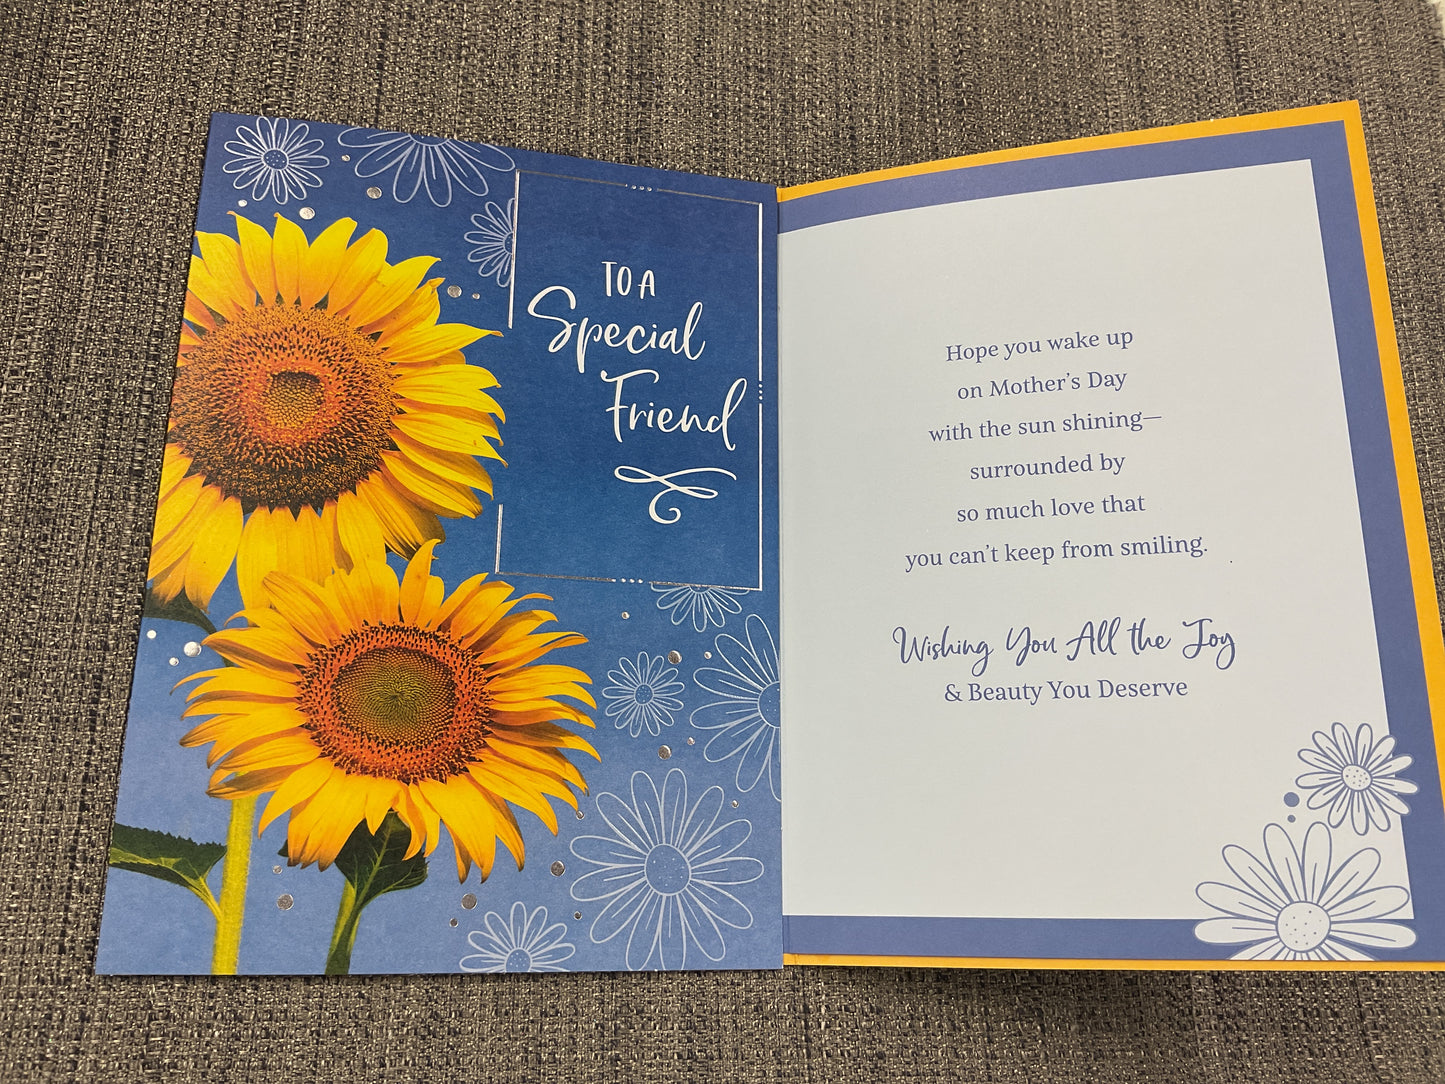 TO A
Special
Friend
Hope you wake up
on Mother's Day
with the sun shining—
surrounded by
so much love that
you can't keep from smiling.
Wishing You All the Joy
& Beauty You Deserve